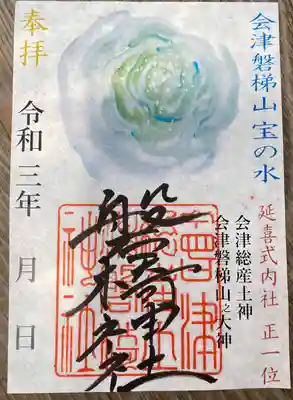 会津磐梯山 宝の水
延喜式内社 正一位
会津総産土神
会津磐梯山之大神
磐椅神社
奉拝
令和三年 月 日